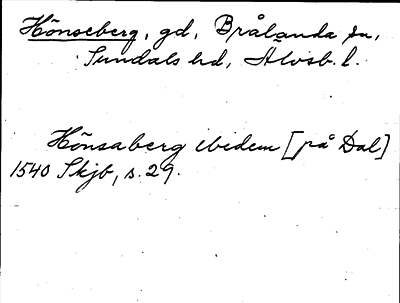 Hönseberg, gd, Brålanda sn,
Sundals hd, Älvsb. l.
Hönsaberg ibidem [på Dal]
1540 Skjb, s. 29.